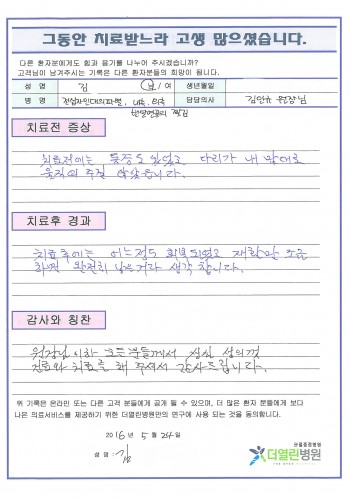 그동안 치료받느라 고생 많으셨습니다.
다른 환자분에게도 힘과 용기를 나누어 주시겠습니까?
고객님이 남겨주시는 기록은 다른 환자분들의 희망이 됩니다.
성 명 김 남 / 여 생년월일
병 명 전십자인대의파열, 내측, 외측 담당의사 김 원장님
반월연골 찢김
치료전 증상
치료전에는 통증도 있었고 다리가 내 맘대로
움직여 주질 않았습니다.
치료후 경과
치료후에는 어느정도 회복되었고 재활만 조금
하면 완전히 낫는거라 생각합니다.
감사와 칭찬
원장님 이하 모든분들께서 성심 성의껏
진료와 치료를 해 주셔서 감사드립니다.
위 기록은 온라인 또는 다른 고객 분들에게 공개 될 수 있으며, 더 많은 환자 분들에게 보다
나은 의료서비스를 제공하기 위한 더열린병원만의 연구에 사용 되는 것을 동의합니다.
2016 년 5 월 24 일
성 명 : 김
관절중점병원
더열린병원